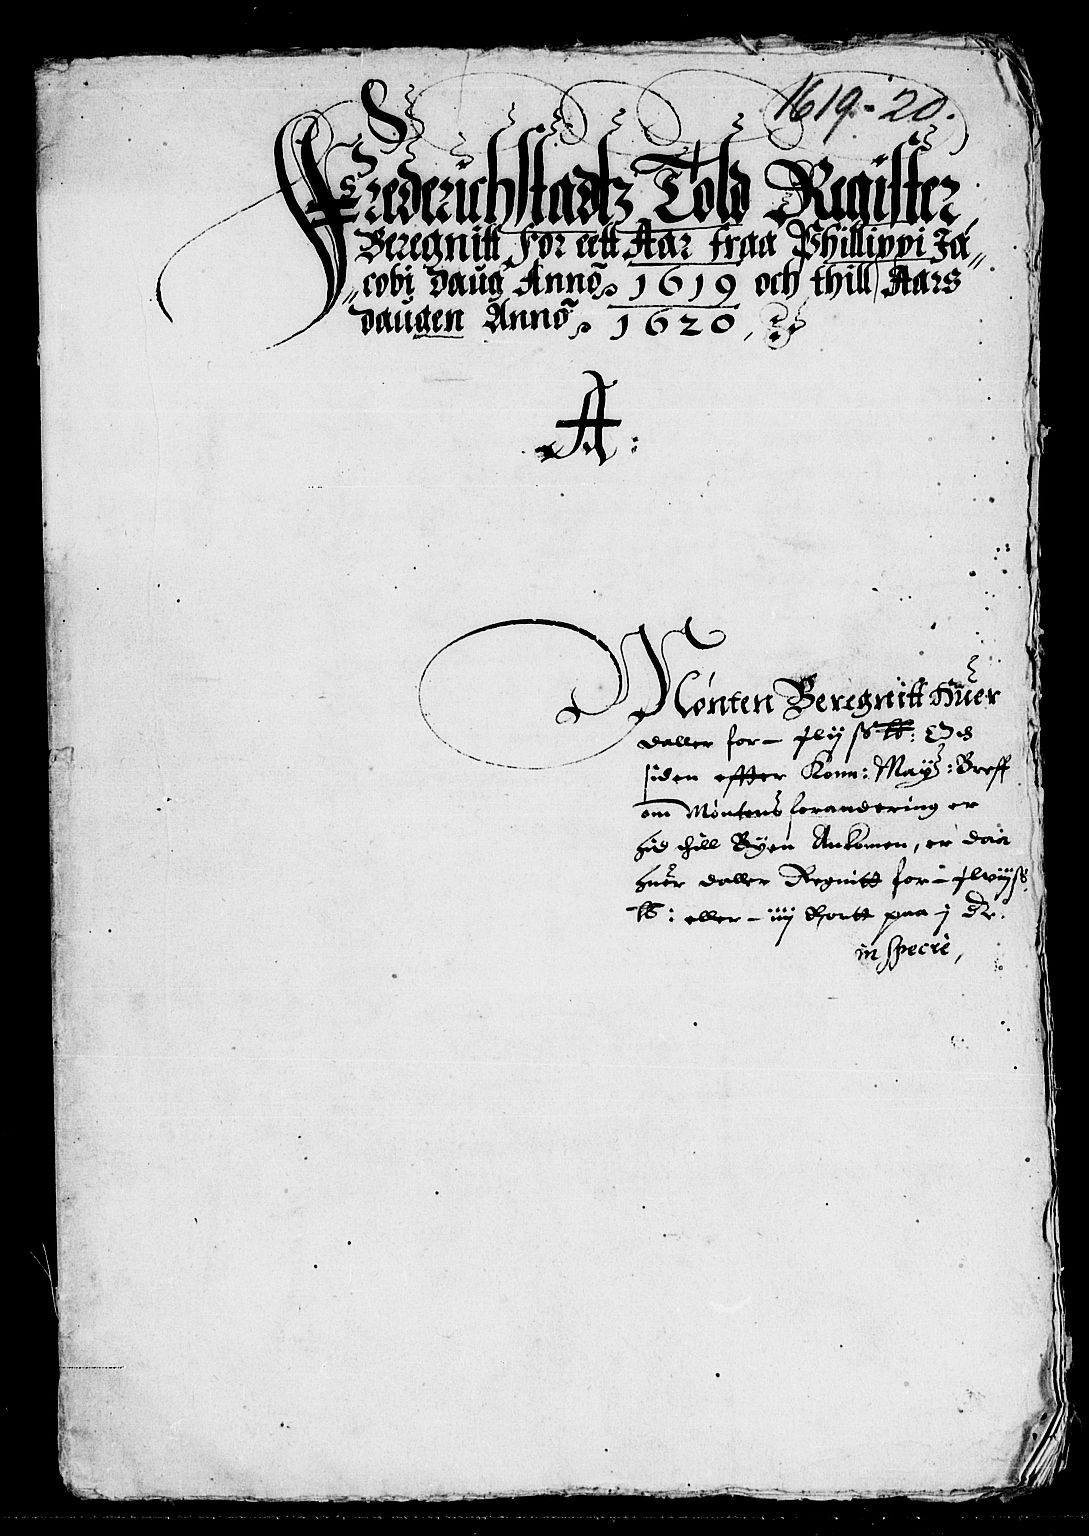 1619-20.
Frederichstadtz Told Register
Beregnitt for eett Aar fraa Phillippi Ja„
„cobi daug Anno 1619 och thill Aars
daugen Anno 1620,
A:
Mønten Beregnitt Huer
daller for
siden effter Konn: Maytz: Breff
om Møntens forandering er
hid thill Byen Ankomen, er daa
huer daller Regnitt for
eller – iiij Hortt paa j Dr.
in specie,